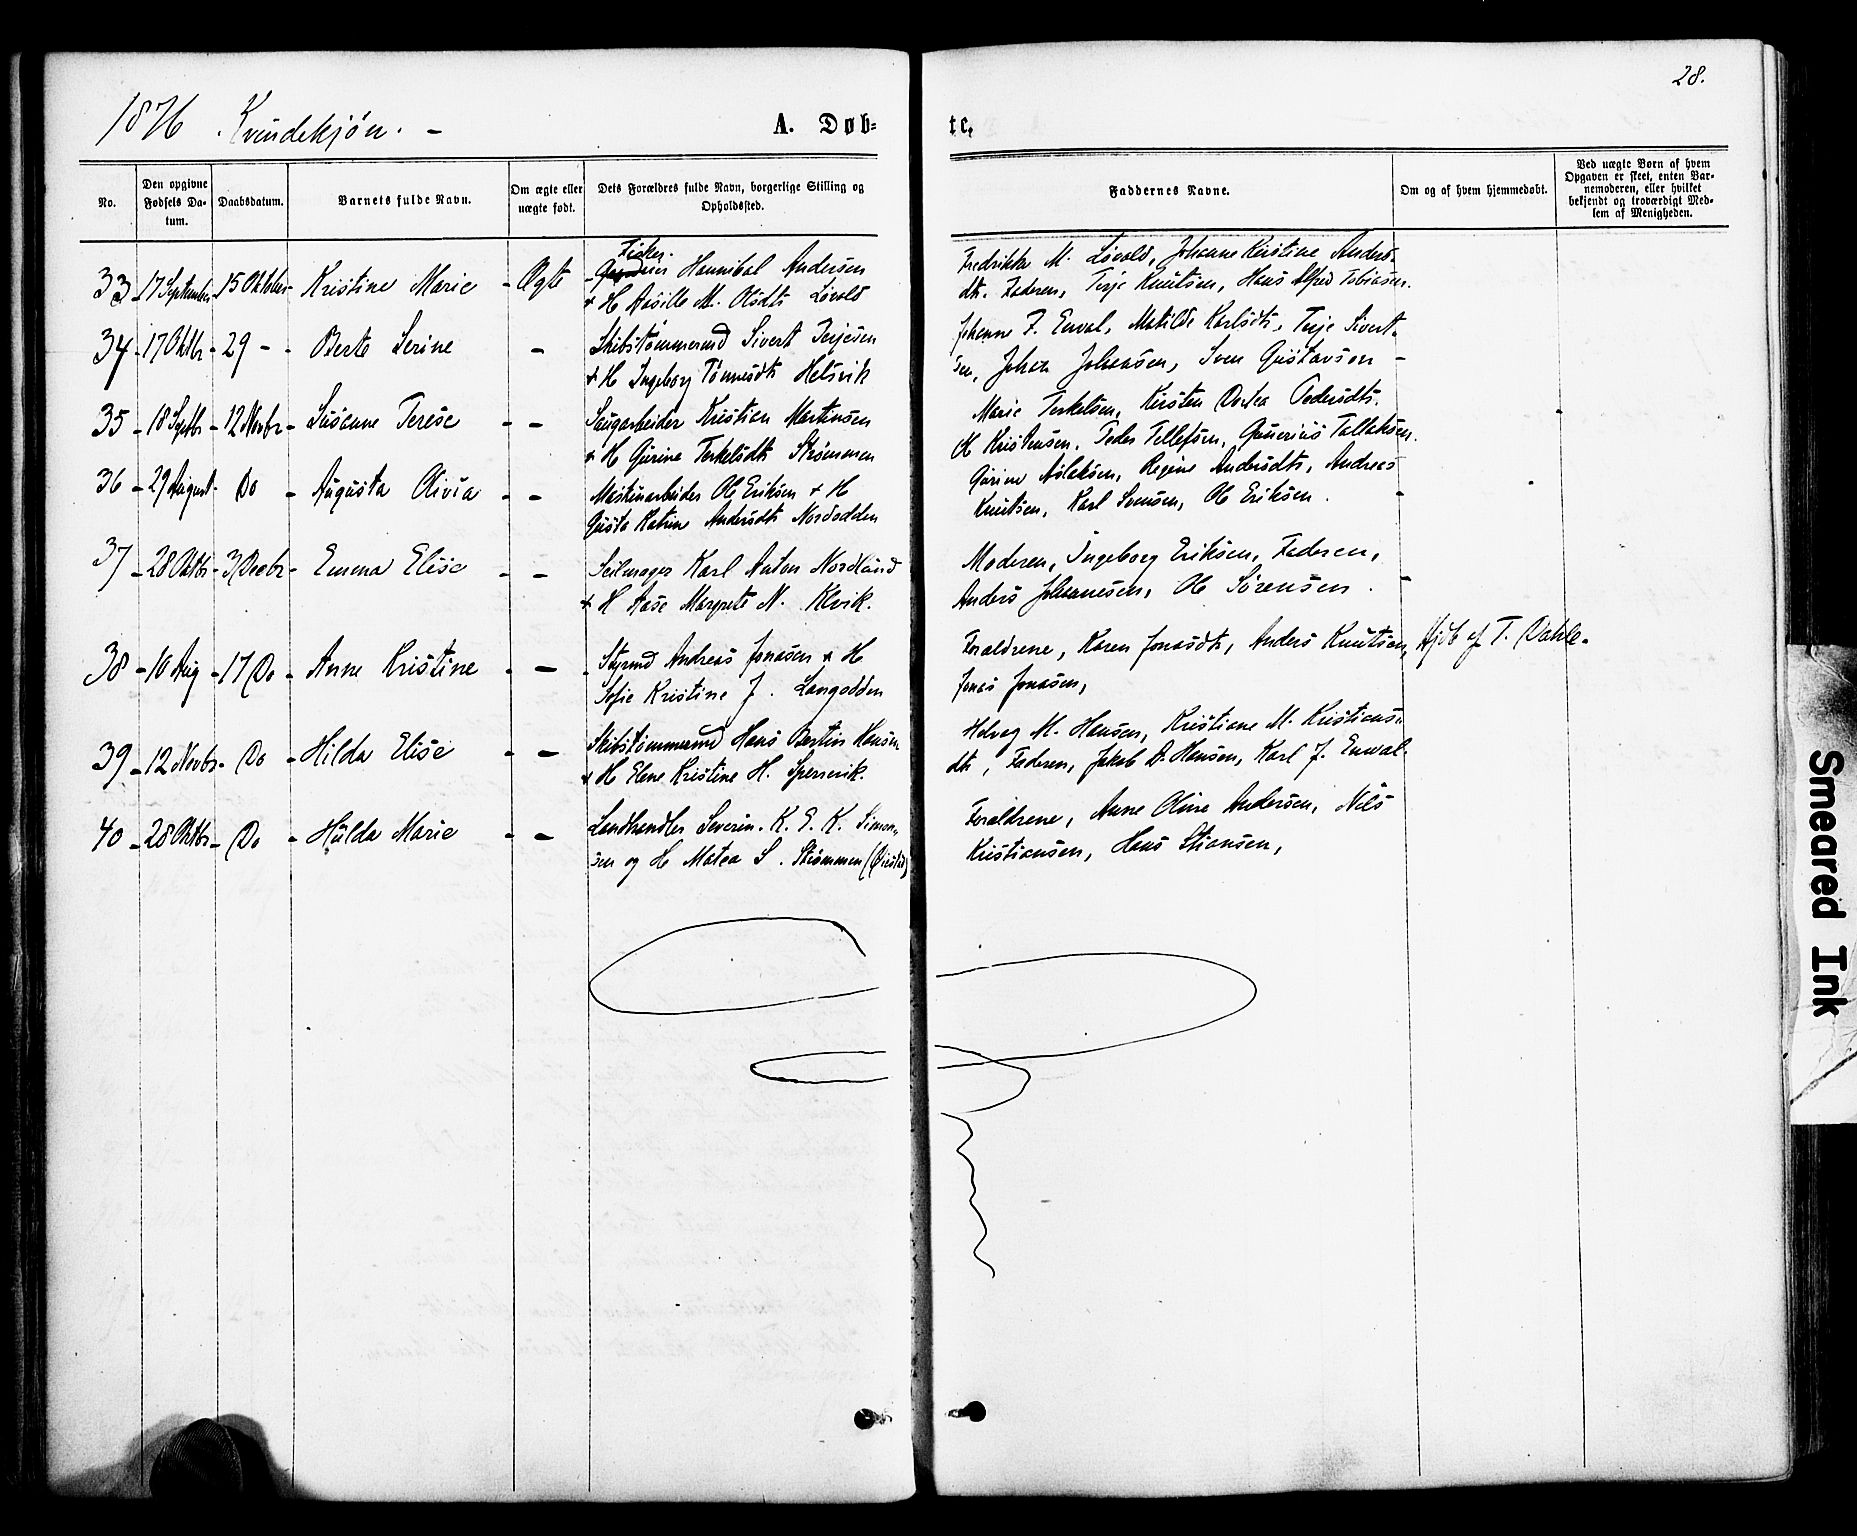 28.
1876 Kvindekjøn. -
A. Døb- te.
No.
Den opgivne Fødsels Da-tum.
Daabsdatum.
Barnets fulde Navn.
Om ægte eller uægte født.
Dets Forældres fulde Navn, borgerlige Stilling og Opholdssted.
Faddernes Navne.
Om og af hvem hjemmedøbt.
Ved uægte Børn af hvem Opgaven er skeet, enten Bar-nemoderen, eller hvilket bekjendt og troværdigt Med-lem af Menigheden.
33 - 17 September - 15 Oktober - Kristine Marie - Ægte - Fisker Hannibal Andersen
+ H Aasille M. Olsdtr Løvold
Fredrikke M. Løvold, Johanne Kristine Anders-
dtr. Faderen, Terje Knutsen, Hans Alfred Tobiasen.
34 - 17 Oktbr - 29 - - Berte Serine - Skibstømmermd Sivert Terjesen
+ H Ingeborg Tønnesdtr Helsvik
Johanne F. Enval, Matilde Karlsdtr, Terje Sivert-
sen, Johan Johansen, Sven Gustavson -
35 - 18 Septbr - 12 Novbr - Susanne Terese - - Saugarbeider Kristian Martinsen
+ H Gurine Terkelsdtr Strømmen
Marie Terkelsen, Kirsten Dortea Pedersdtr.
M Kristensen, Peder Tellefsen, Gunerius Tallaksen.
36 - 29 August - Do - Augusta Olivia - - Maskinarbeider Ole Eriksen + H
Gusta Katrine Andersdtr Nordodden
Gurine Aslaksen, Regine Andersdtr, Andreas
Knutsen, Karl Svensen, Ole Eriksen. -
37 - 28 Oktbr - 3 Decbr - Emma Elise - - Seilmager Karl Anton Nordlund
+ H Aase Margrete N. Klvik.
Moderen, Ingeborg Eriksen, Faderen,
Anders Johannesen, Ole Sørensen. -
38 - 10 Aug - 17 Do - Anne Kristine - - Styrmd Andreas Jonasen + H
Sofie Kristine J. Langodden
Forældrene, Karen Jonasdtr, Anders Knutsen,
Jonas Jonasen,
Hjdb af T. Dahle.
39 - 12 Novbr - Do - Hilda Elise - - Skibstømmermd Hans Bertin Hansen
+ H Elene Kristine H. Spervik.
Helveg M. Hansen, Kristiane M. Kristians-
dtr, Faderen, Jakob A. Hansen, Karl J. Enwal.
40 - 28 Oktbr - Do - Hulda Marie - - Landhandler Severin K. E. K. Simon-
sen og H Matea S. Strømmen (Øiestad)
Forældrene, Anne Oline Andersen, Nils
Kristiansen, Hans Stiansen,
Smeared Ink